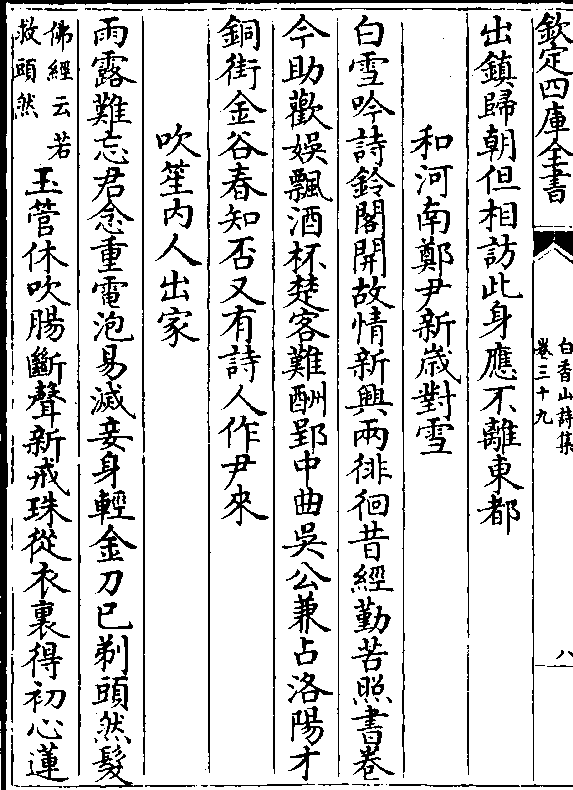 欽定四庫全書
白香山詩集
卷三十九
八
出鎮歸朝但相訪此身應不離東都
和河南鄭尹新歳對雪
白雪吟詩鈴閣開故情新興兩徘徊昔經勤苦照書卷
今助歡娛飄酒杯楚客難酬郢中曲吳公兼占洛陽才
銅街金谷春知否又有詩人作尹來
吹笙内人出家
雨露難忘君念重電泡易滅妾身輕金刀已剃頭然髮
佛經云若
救頭然
玉管休吹腸斷聲新戒珠從衣裏得初心蓮